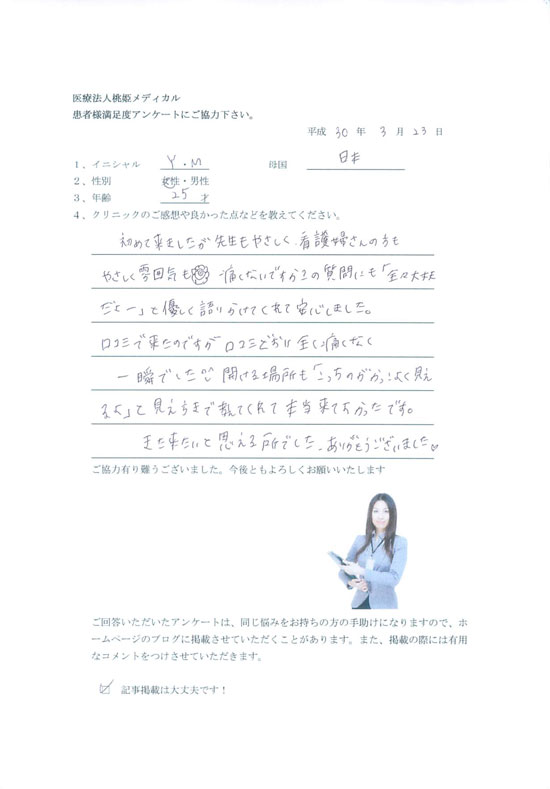 医療法人桃姫メディカル
患者様満足度アンケートにご協力下さい。
平成 30 年 3 月 23 日
1、イニシャル Y.M 母国 日本
2、性別 女性・男性
3、年齢 25 才
4、クリニックのご感想や良かった点などを教えてください。
初めて来ましたが先生もやさしく、看護婦さんの方も
やさしく雰囲気も 痛くないですか?の質問にも「全々大丈夫
だよー」と優しく語りかけてくれて安心しました。
口コミで来たのですが口コミどおり全く痛くなく
一瞬でした^^ 開ける場所も「こっちのがかっこよく見え
るよ」と見え方まで教えてくれて本当来てよかったです。
また来たいと思える所でした。ありがとうございました♡
ご協力有り難うございました。今後ともよろしくお願いいたします
ご回答いただいたアンケートは、同じ悩みをお持ちの方の手助けになりますので、ホ
ームページのブログに掲載させていただくことがあります。また、掲載の際には有用
なコメントをつけさせていただきます。
☑ 記事掲載は大丈夫です！